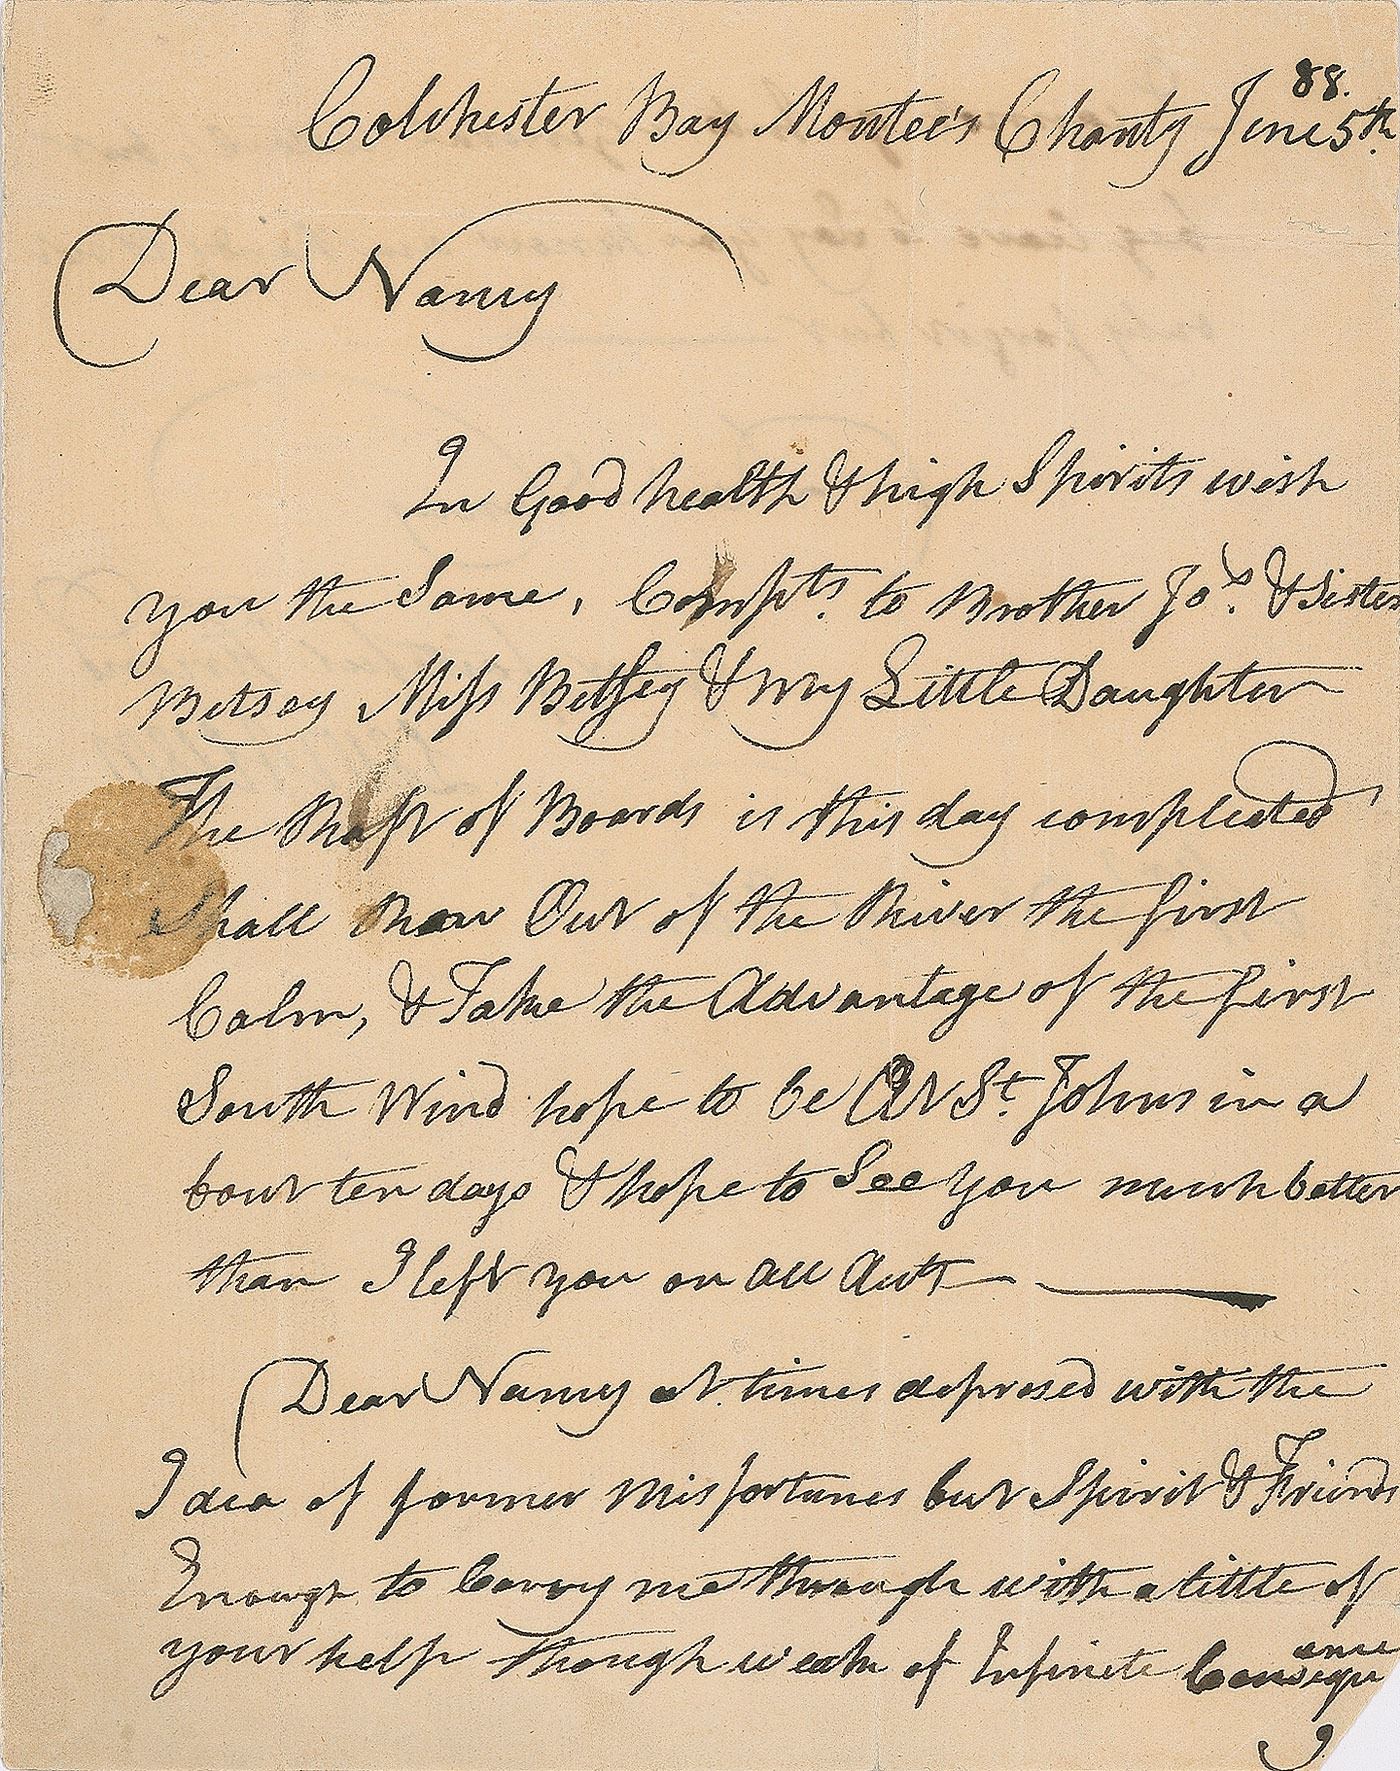 Colchester Bay Montee's Chanty June 5th 88.
Dear Nancy
In Good health & high Spirits wish
you the Same, Compts. to Brother Jos. & Sister
Betsey Miss Betsey & My Little Daughter
The Raft of Boards is this day compleated
Shall Row Out of the River the first
Calm, & Take the Advantage of the first
South Wind hope to be At St. Johns in a
bout ten days & hope to See you much better
than I left you on all Acts
Dear Nancy at times depresed with the
Idea of former Misfortunes but Spirit & Friends
Enough to Carry me through with a little of
your help though weak of Infinite Consequence